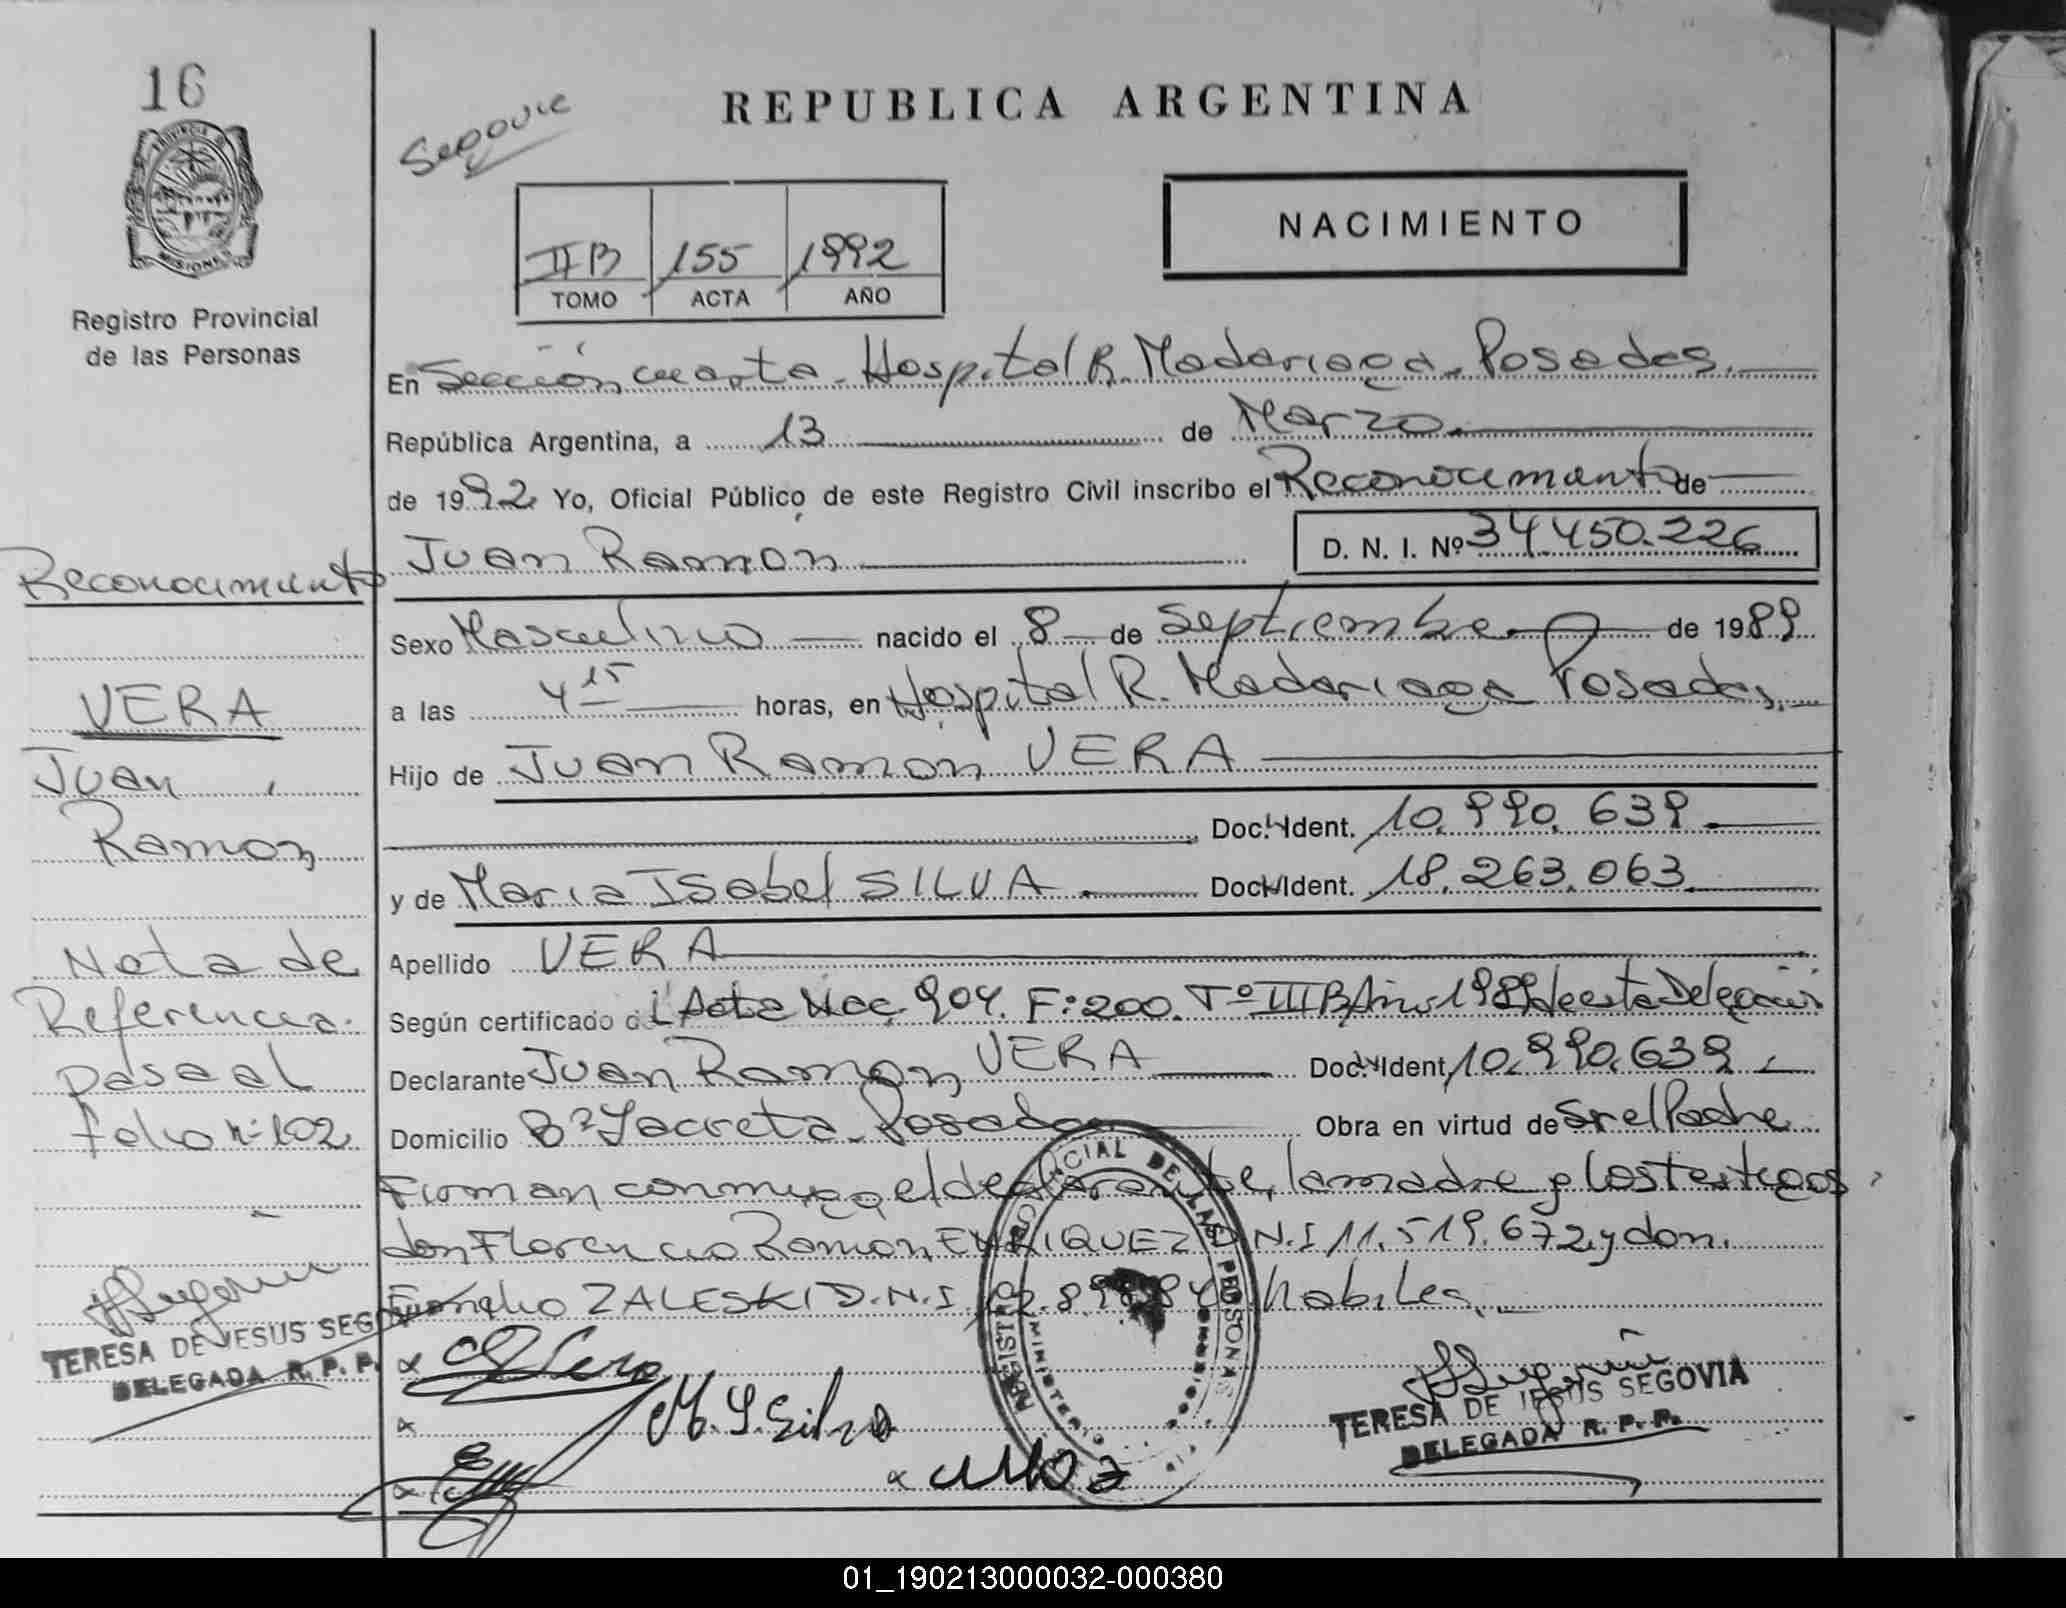 16
Segovia
REPUBLICA ARGENTINA
PROVINCIA DE
MISIONES
Registro Provincial
de las Personas
NACIMIENTO
II B 155 1992
TOMO ACTA AÑO
En Sección cuarta. Hospital R. Madariaga. Posadas.
República Argentina, a 13 de Marzo.
de 1992 Yo, Oficial Público de este Registro Civil inscribo el Reconocimiento de
Juan Ramón D. N. I. Nº 34.450.226
Sexo Masculino nacido el 8 de Septiembre de 1989
a las 4 15 horas, en Hospital R. Madariaga Posadas.
Hijo de Juan Ramón VERA
Doc. Ident. 10.990.639
y de Maria Isabel SILVA. Doc. Ident. 18.263.063
Apellido VERA
Según certificado Acta Nac. 904. F:200. Tº III B Año 1989 de esta Delegación
Declarante Juan Ramon VERA Doc. Ident. 10.990.639
Domicilio Bº Yacreta. Posadas Obra en virtud de Sr el Padre
Firman conmigo el declarante, la madre y los testigos
don Florencio Ramon ENRIQUEZ D.N.I 11.519.672 y don
ZALESKI D.N.I habiles.
Reconocimiento
VERA
Juan
Ramon
Nota de
Referencia
pasa al
folio nº 102
TERESA DE JESUS SEGOVIA
DELEGADA R. P. P.
M. I. Silva
TERESA DE JESUS SEGOVIA
DELEGADA R. P. P.
01_190213000032-000380